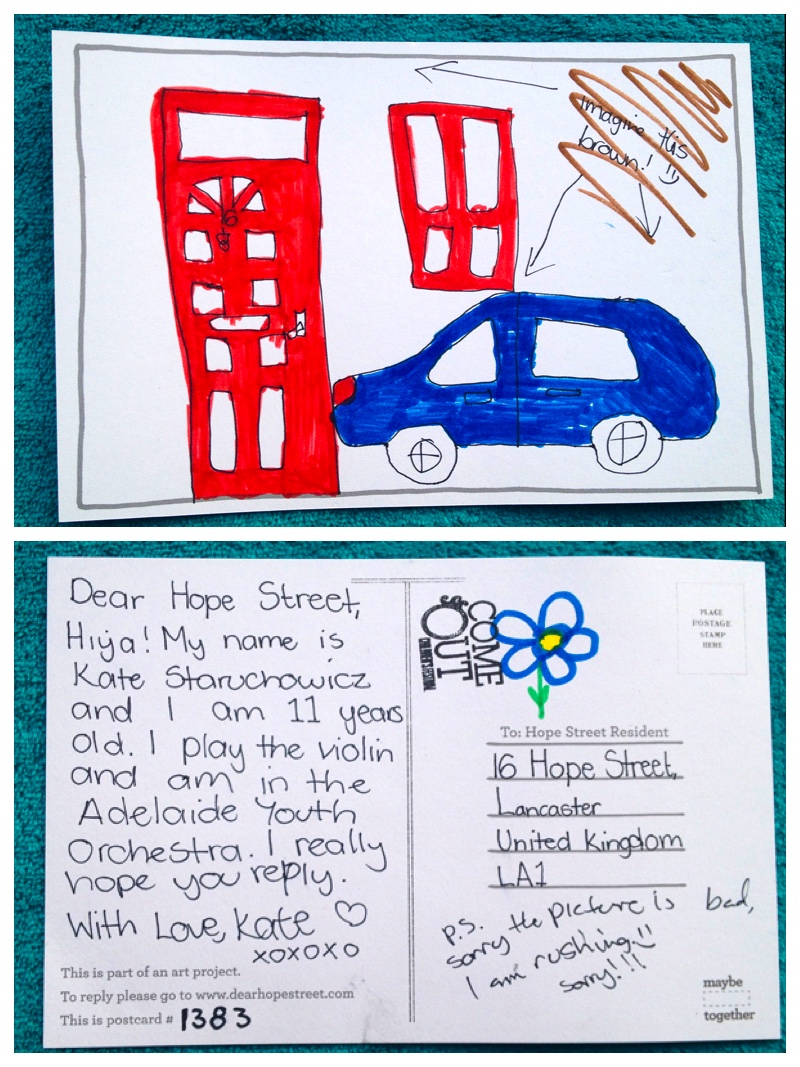 imagine this
brown! :)
16
Dear Hope Street,
Hiya! My name is
Kate Staruchowicz
and I am 11 years
old. I play the violin
and am in the
Adelaide Youth
Orchestra. I really
hope you reply.
With Love, Kate ♡
xoxoxo
This is part of an art project.
To reply please go to www.dearhopestreet.com
This is postcard # 1383
COME
OUT
PLACE
POSTAGE
STAMP
HERE
To: Hope Street Resident
16 Hope Street,
Lancaster
United Kingdom
LA1
p.s.
sorry the picture is bad,
I am rushing!!
sorry!!!
maybe
together